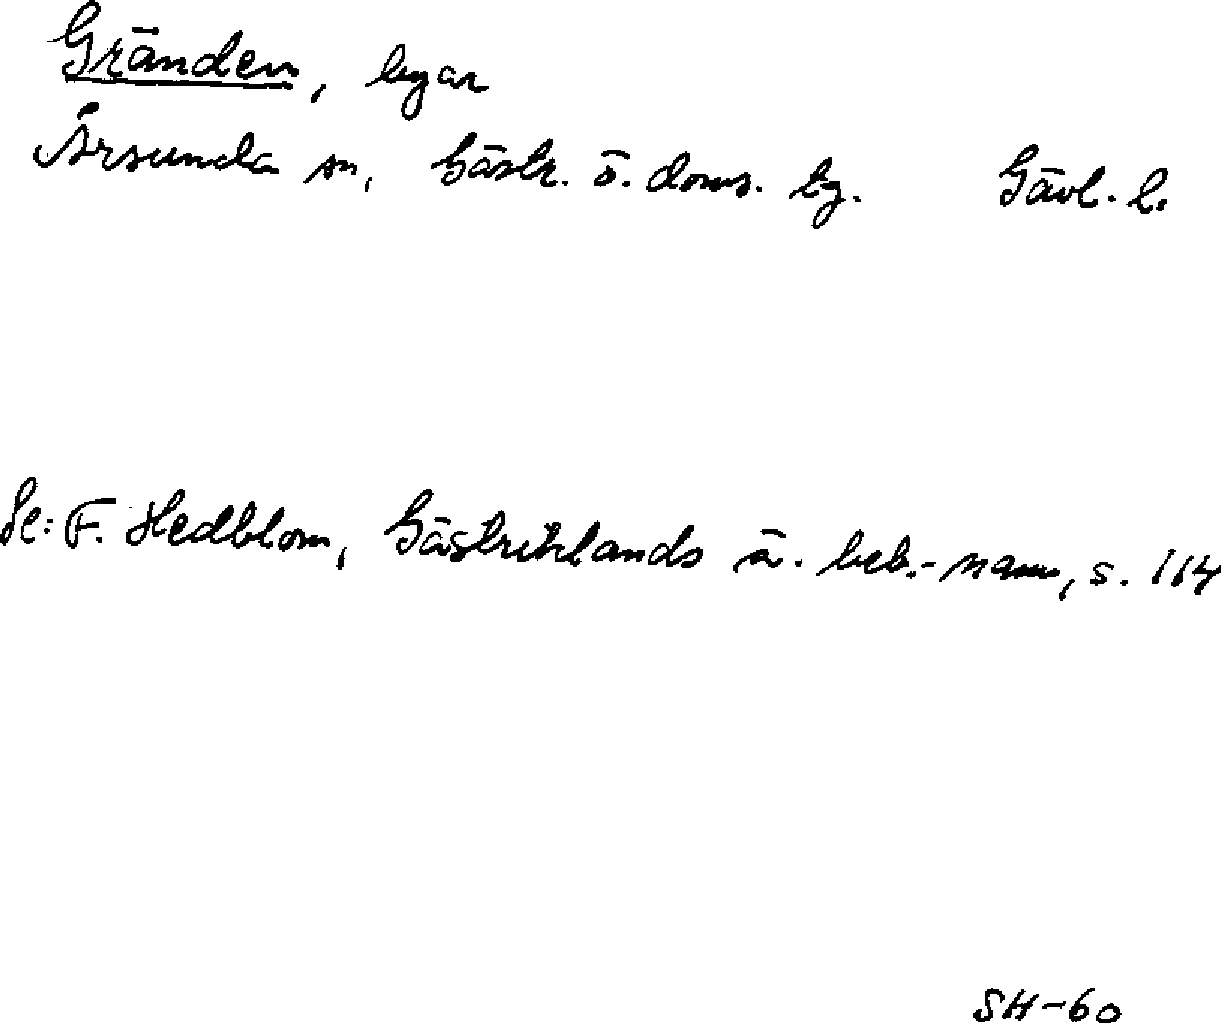 Gränden, byar
Årsunda sn, Gästr. ö. doms. tg. Gävl. l.
Se: F. Hedblom, Gästriklands ä. beb.-namn, s. 114
SH-60